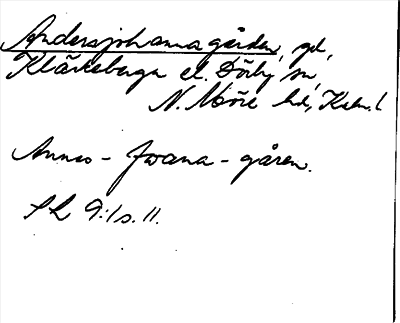 Andersjohannagården, gd,
Kläckeberga el. Dörby sn,
N. Möre hd, Kalm. l
Annes - Jwana - gåren.
SL 9:1 s. 11.